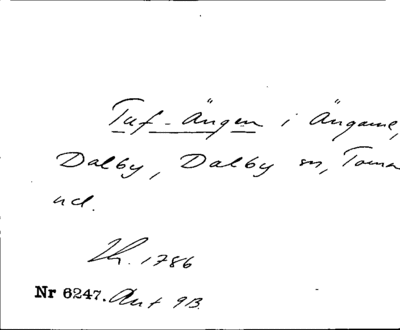 Tuf-Ängen i Ängarne,
Dalby, Dalby sn, Torna
hd.
Lh. 1786
Nr 6247. Akt 93.